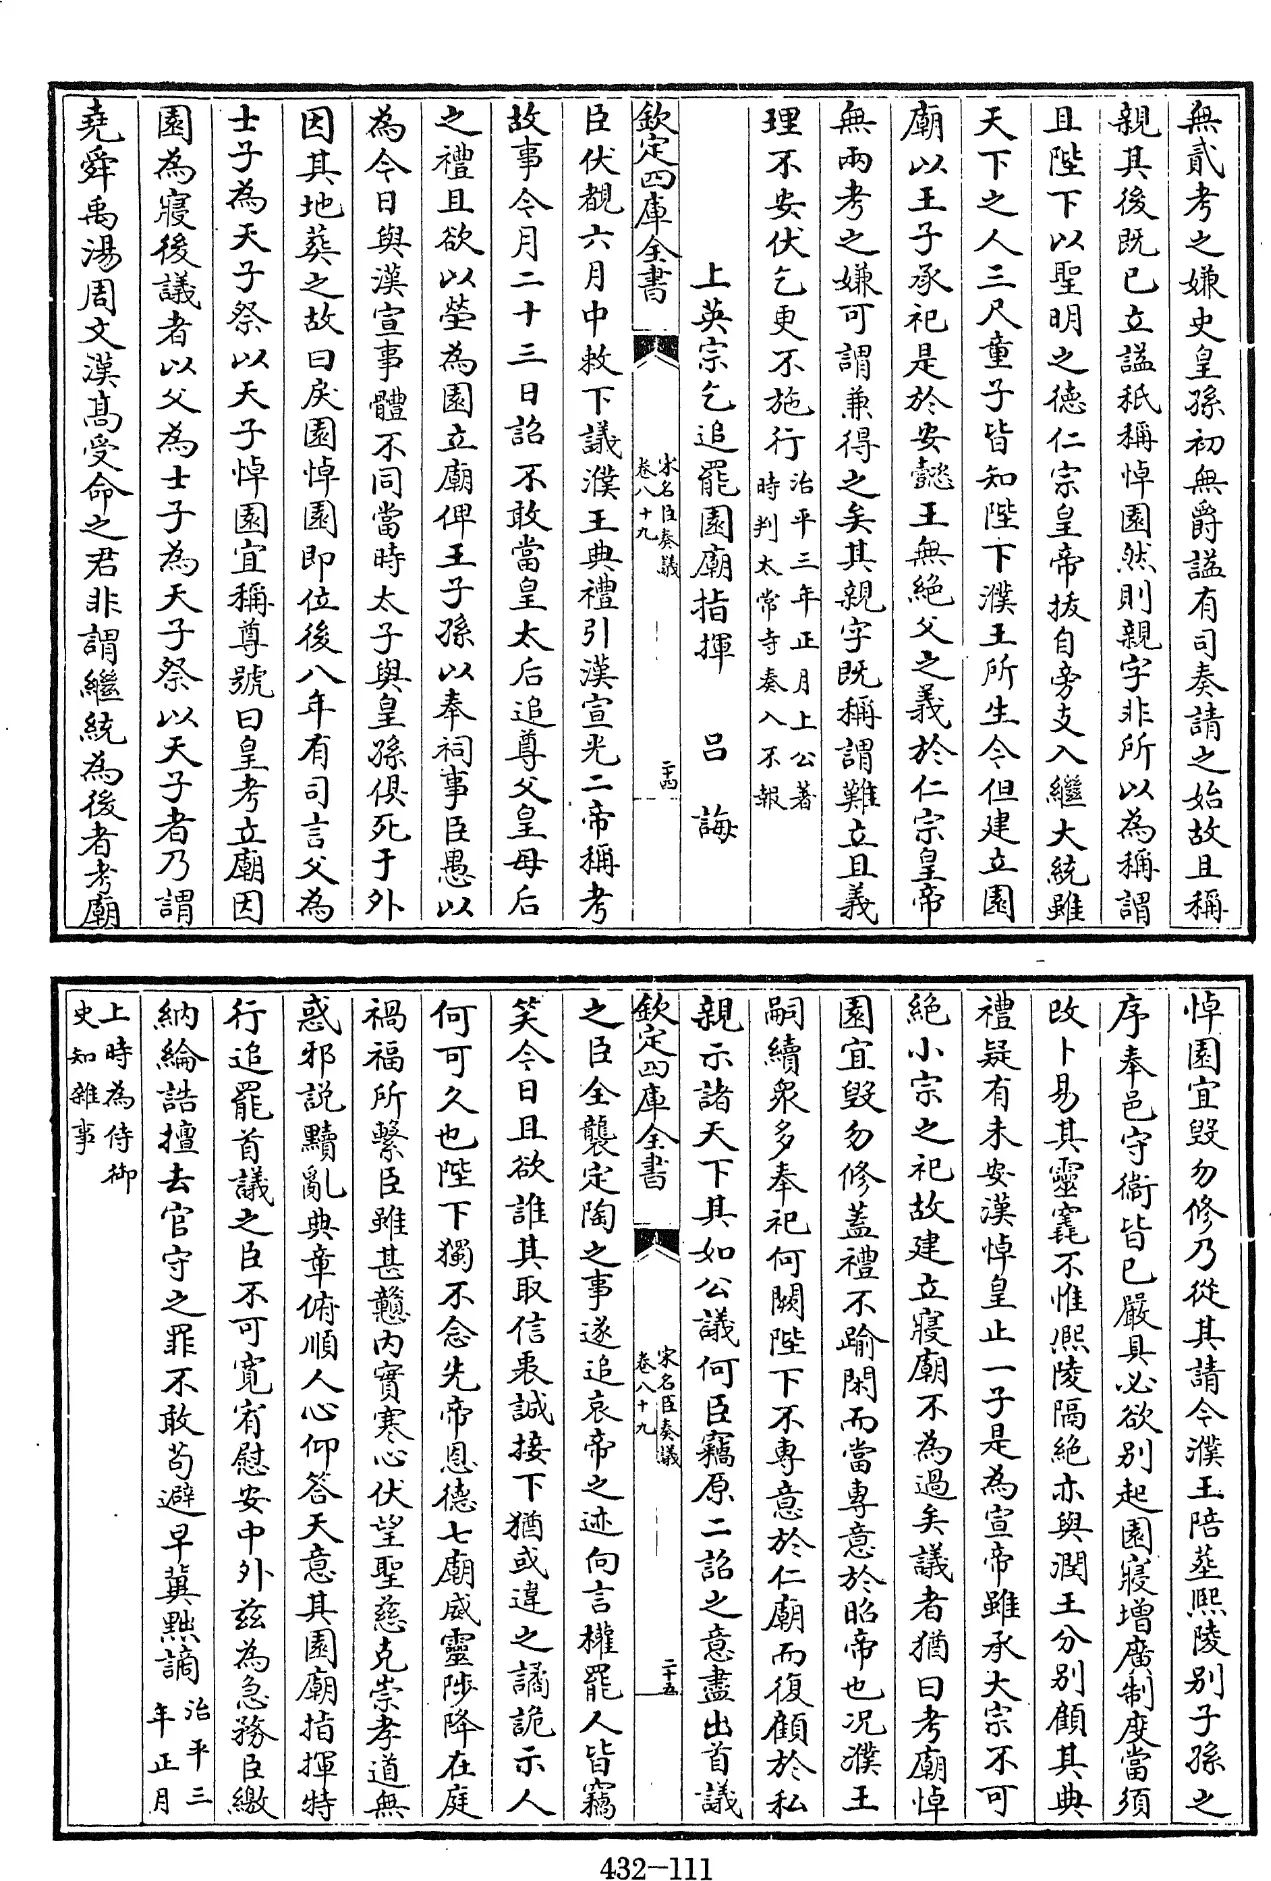 無貳考之嫌史皇孫初無爵諡有司奏請之始故且稱
親其後既已立諡秖稱悼園然則親字非所以為稱謂
且陛下以聖明之德仁宗皇帝拔自旁支入繼大統雖
天下之人三尺童子皆知陛下濮王所生今但建立園
廟以王子承祀是於安懿王無絶父之義於仁宗皇帝
無兩考之嫌可謂兼得之矣其親字既稱謂難立且義
理不安伏乞更不施行治平三年正月上公著
時判太常寺奏入不報
上英宗乞追罷園廟指揮 呂 誨
欽定四庫全書
宋名臣奏議
卷八十九
二十四
臣伏覩六月中敕下議濮王典禮引漢宣光二帝稱考
故事今月二十三日詔不敢當皇太后追尊父皇母后
之禮且欲以塋為園立廟俾王子孫以奉祠事臣愚以
為今日與漢宣事體不同當時太子與皇孫俱死于外
因其地葬之故曰戾園悼園即位後八年有司言父為
士子為天子祭以天子悼園宜稱尊號曰皇考立廟因
園為寢後議者以父為士子為天子祭以天子者乃謂
堯舜禹湯周文漢髙受命之君非謂繼統為後者考廟
悼園宜毀勿修乃從其請今濮王陪葬熙陵别子孫之
序奉邑守衞皆已嚴具必欲别起園寢增廣制度當須
改卜易其靈竁不惟熙陵隔絶亦與潤王分别顧其典
禮疑有未安漢悼皇止一子是為宣帝雖承大宗不可
絶小宗之祀故建立寢廟不為過矣議者猶曰考廟悼
園宜毀勿修蓋禮不踰閑而當專意於昭帝也况濮王
嗣續衆多奉祀何闕陛下不專意於仁廟而復顧於私
親示諸天下其如公議何臣竊原二詔之意盡出首議
欽定四庫全書
宋名臣奏議
卷八十九
二十五
之臣全襲定陶之事遂追哀帝之迹向言權罷人皆竊
笑今日且欲誰其取信衷誠接下猶或違之譎詭示人
何可久也陛下獨不念先帝恩德七廟威靈陟降在庭
禍福所繫臣雖甚戇内實寒心伏望聖慈克崇孝道無
惑邪説黷亂典章俯順人心仰答天意其園廟指揮特
行追罷首議之臣不可寛宥慰安中外兹為急務臣繳
納綸誥擅去官守之罪不敢苟避早冀黜謫治平三
年正月
上時為侍御
史知雜事
432-111